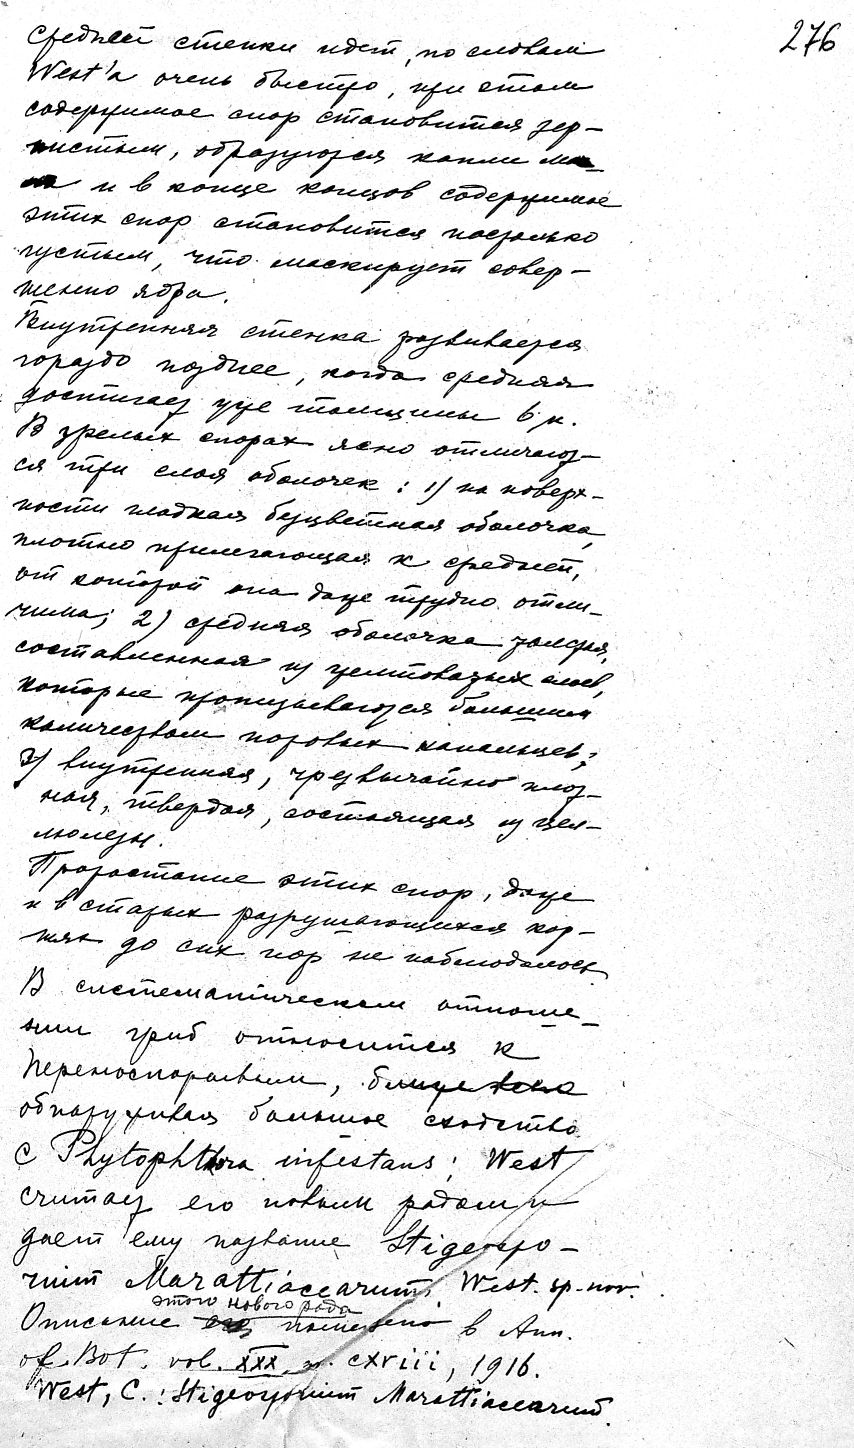 276
средней стенки идет, по словам
West'а очень быстро, при этом
содержимое спор становится зер-
нистым, образуются капли ма-
и в конце концов содержимое
этих спор становится настолько
густым, что маскирует совер-
шенно ядра.
Внутренняя стенка развивается
гораздо позднее, когда средняя
достигает уже толщины 6 μ.
В зрелых спорах ясно отличают-
ся три слоя оболочек: 1) на поверх-
ности гладкая бесцветная оболочка,
плотно прилегающая к средней,
от которой она даже трудно отли-
чима; 2) средняя оболочка
составленная из слоев,
которые пронизываются большим
количеством поровых канальцев;
3) внутренняя, чрезвычайно плот-
ная, твердая, состоящая из цел-
люлезы.
Прорастание этих спор, даже
и в старых разрушающихся кор-
нях до сих пор не наблюдалось.
В систематическом отноше-
нии гриб относится к
Пероноспоровым, ближе всего
обнаруживая большое сходство
с Phytophthora infestans; West
считает его новым родом и
дает ему название Stigeospo-
rium Marattiacearum West. sp. nov.
этого нового рода
Описание помещено в Ann.
of. Bot. vol. XXX. n. cxviii, 1916.
West, C.: Stigeosporium Marattiacearum.